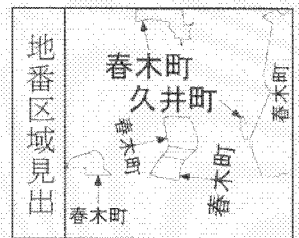 地番区域見出
春木町
久井町
春木町
春木町
春木町
春木町